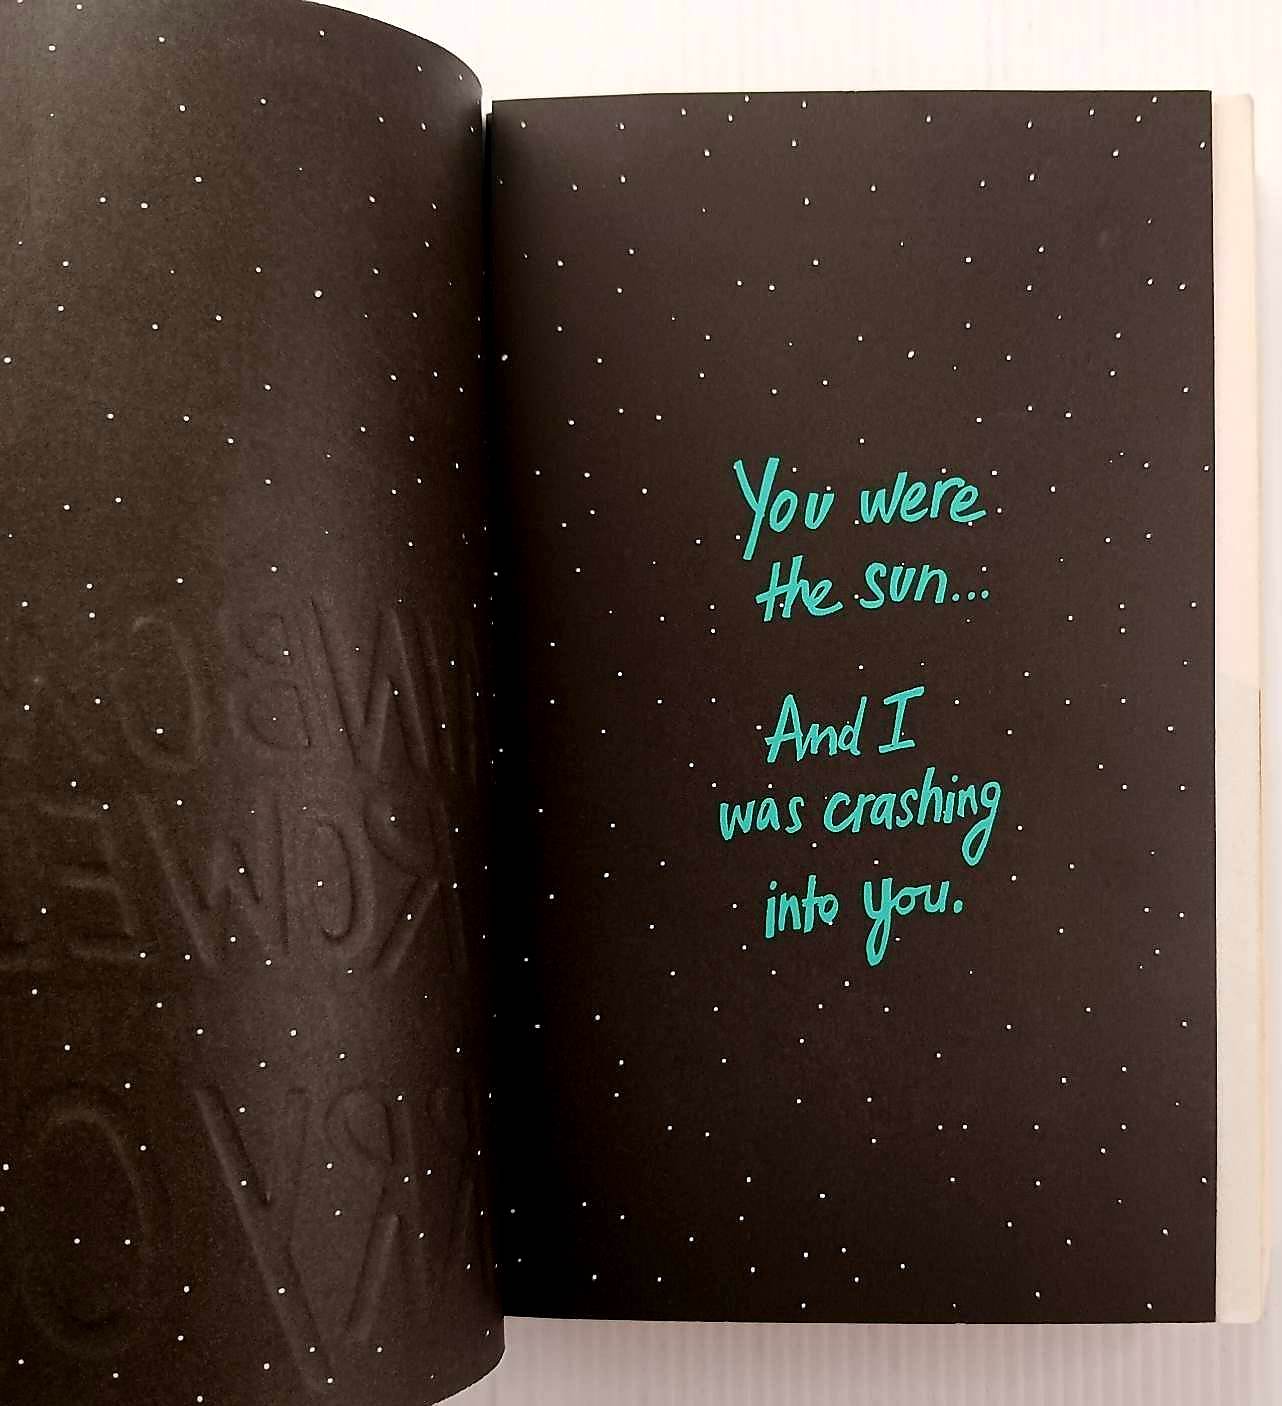 You were
the sun...
And I
was crashing
into you.